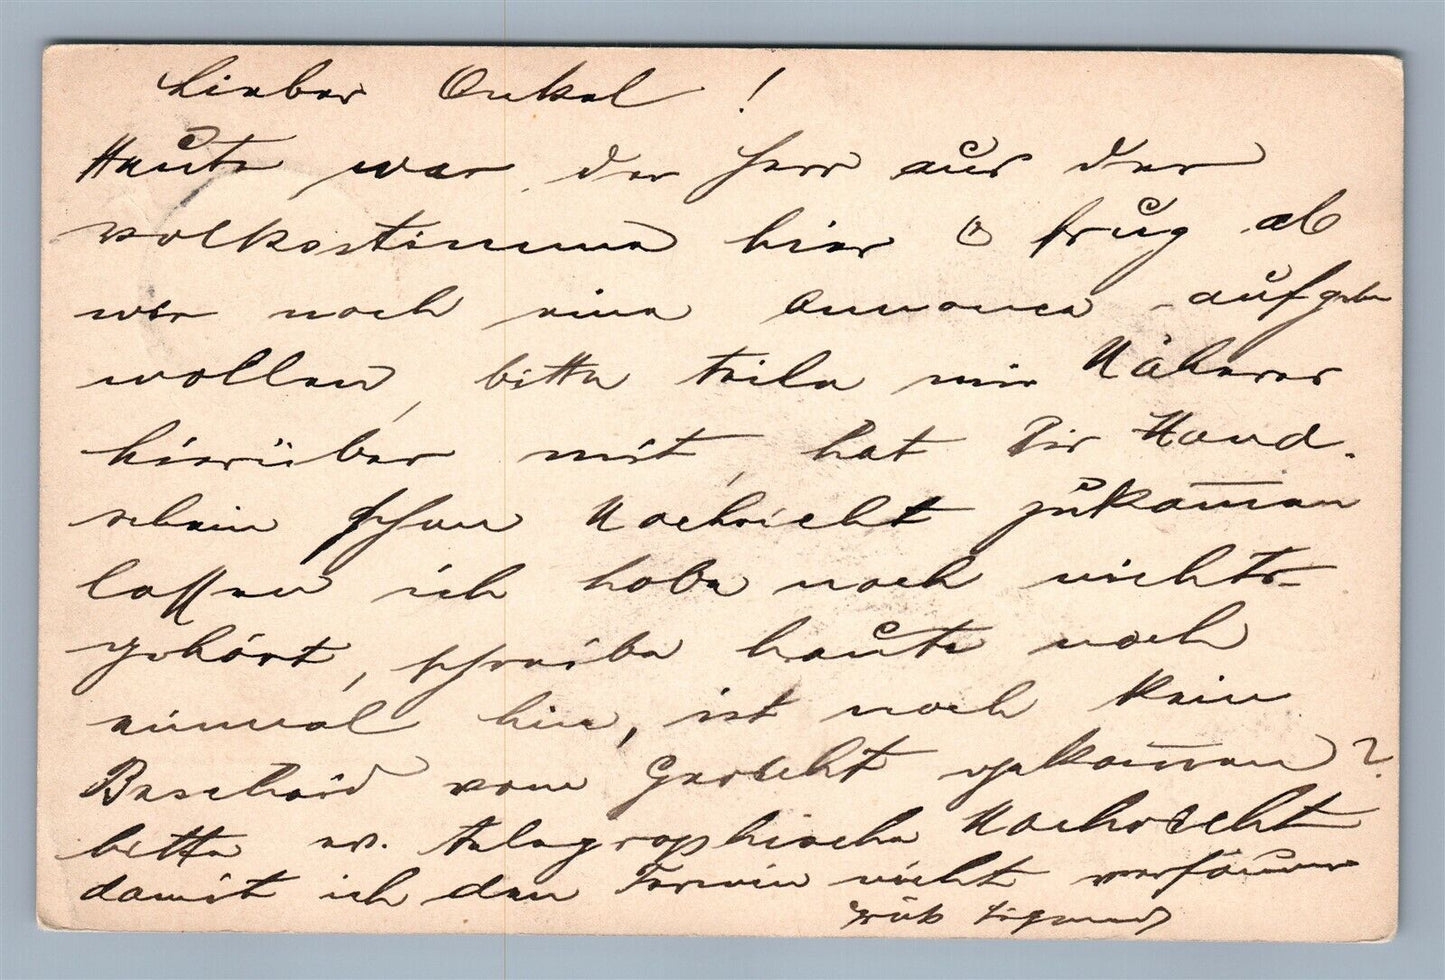 Lieber Onkel!
Heute war der Herr aus der
Volksstimme hier & frug ob
wir noch eine Annonce aufgeben
wollen, bitte teile mir Näheres
hierüber mit, hat Dir Hand-
schein schon Nachricht zukommen
lassen ich habe noch nichts
gehört, schreibe heute noch
einmal hin, ist noch kein
Bescheid vom Gericht gekommen?
bitte ev. telegraphische Nachricht
damit ich den Termin nicht versäume
Gruß Sigmund